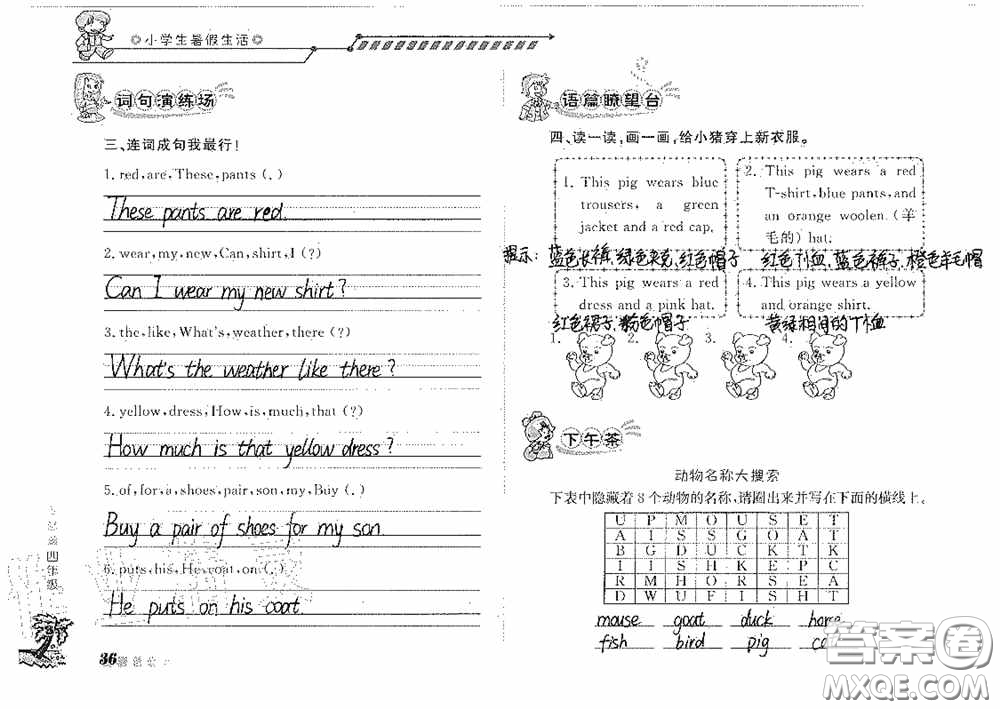 小学生暑假生活
词句演练场
三、连词成句我最行!
1. red,are,These,pants (.)
These pants are red.
2. wear,my,new,Can,shirt,I (?)
Can I wear my new shirt?
3. the,like,What's,weather,there (?)
What's the weather like there?
4. yellow,dress,How,is,much,that (?)
How much is that yellow dress?
5. of,for,a,shoes,pair,son,my,Buy (.)
Buy a pair of shoes for my son.
6. puts,his,He,coat,on (.)
He puts on his coat.
四年级
36
语篇瞭望台
四、读一读,画一画,给小猪穿上新衣服。
1. This pig wears blue
trousers, a green
jacket and a red cap.
2. This pig wears a red
T-shirt,blue pants,and
an orange woolen.(羊
毛的) hat.
提示: 蓝色长裤,绿色夹克,红色帽子
红色T恤,蓝色裤子,橙色羊毛帽
3. This pig wears a red
dress and a pink hat.
4. This pig wears a yellow
and orange shirt.
红色裙子,粉色帽子
黄绿相间的T恤
1. 2. 3. 4.
下午茶
动物名称大搜索
下表中隐藏着8个动物的名称,请圈出来并写在下面的横线上。
U P M O U S E T
A I S S G O A T
B G D U C K T K
I I S H K E P C
R M H O R S E A
D W U F I S H T
mouse goat duck horse
fish bird pig
答案圈
MXQE.COM